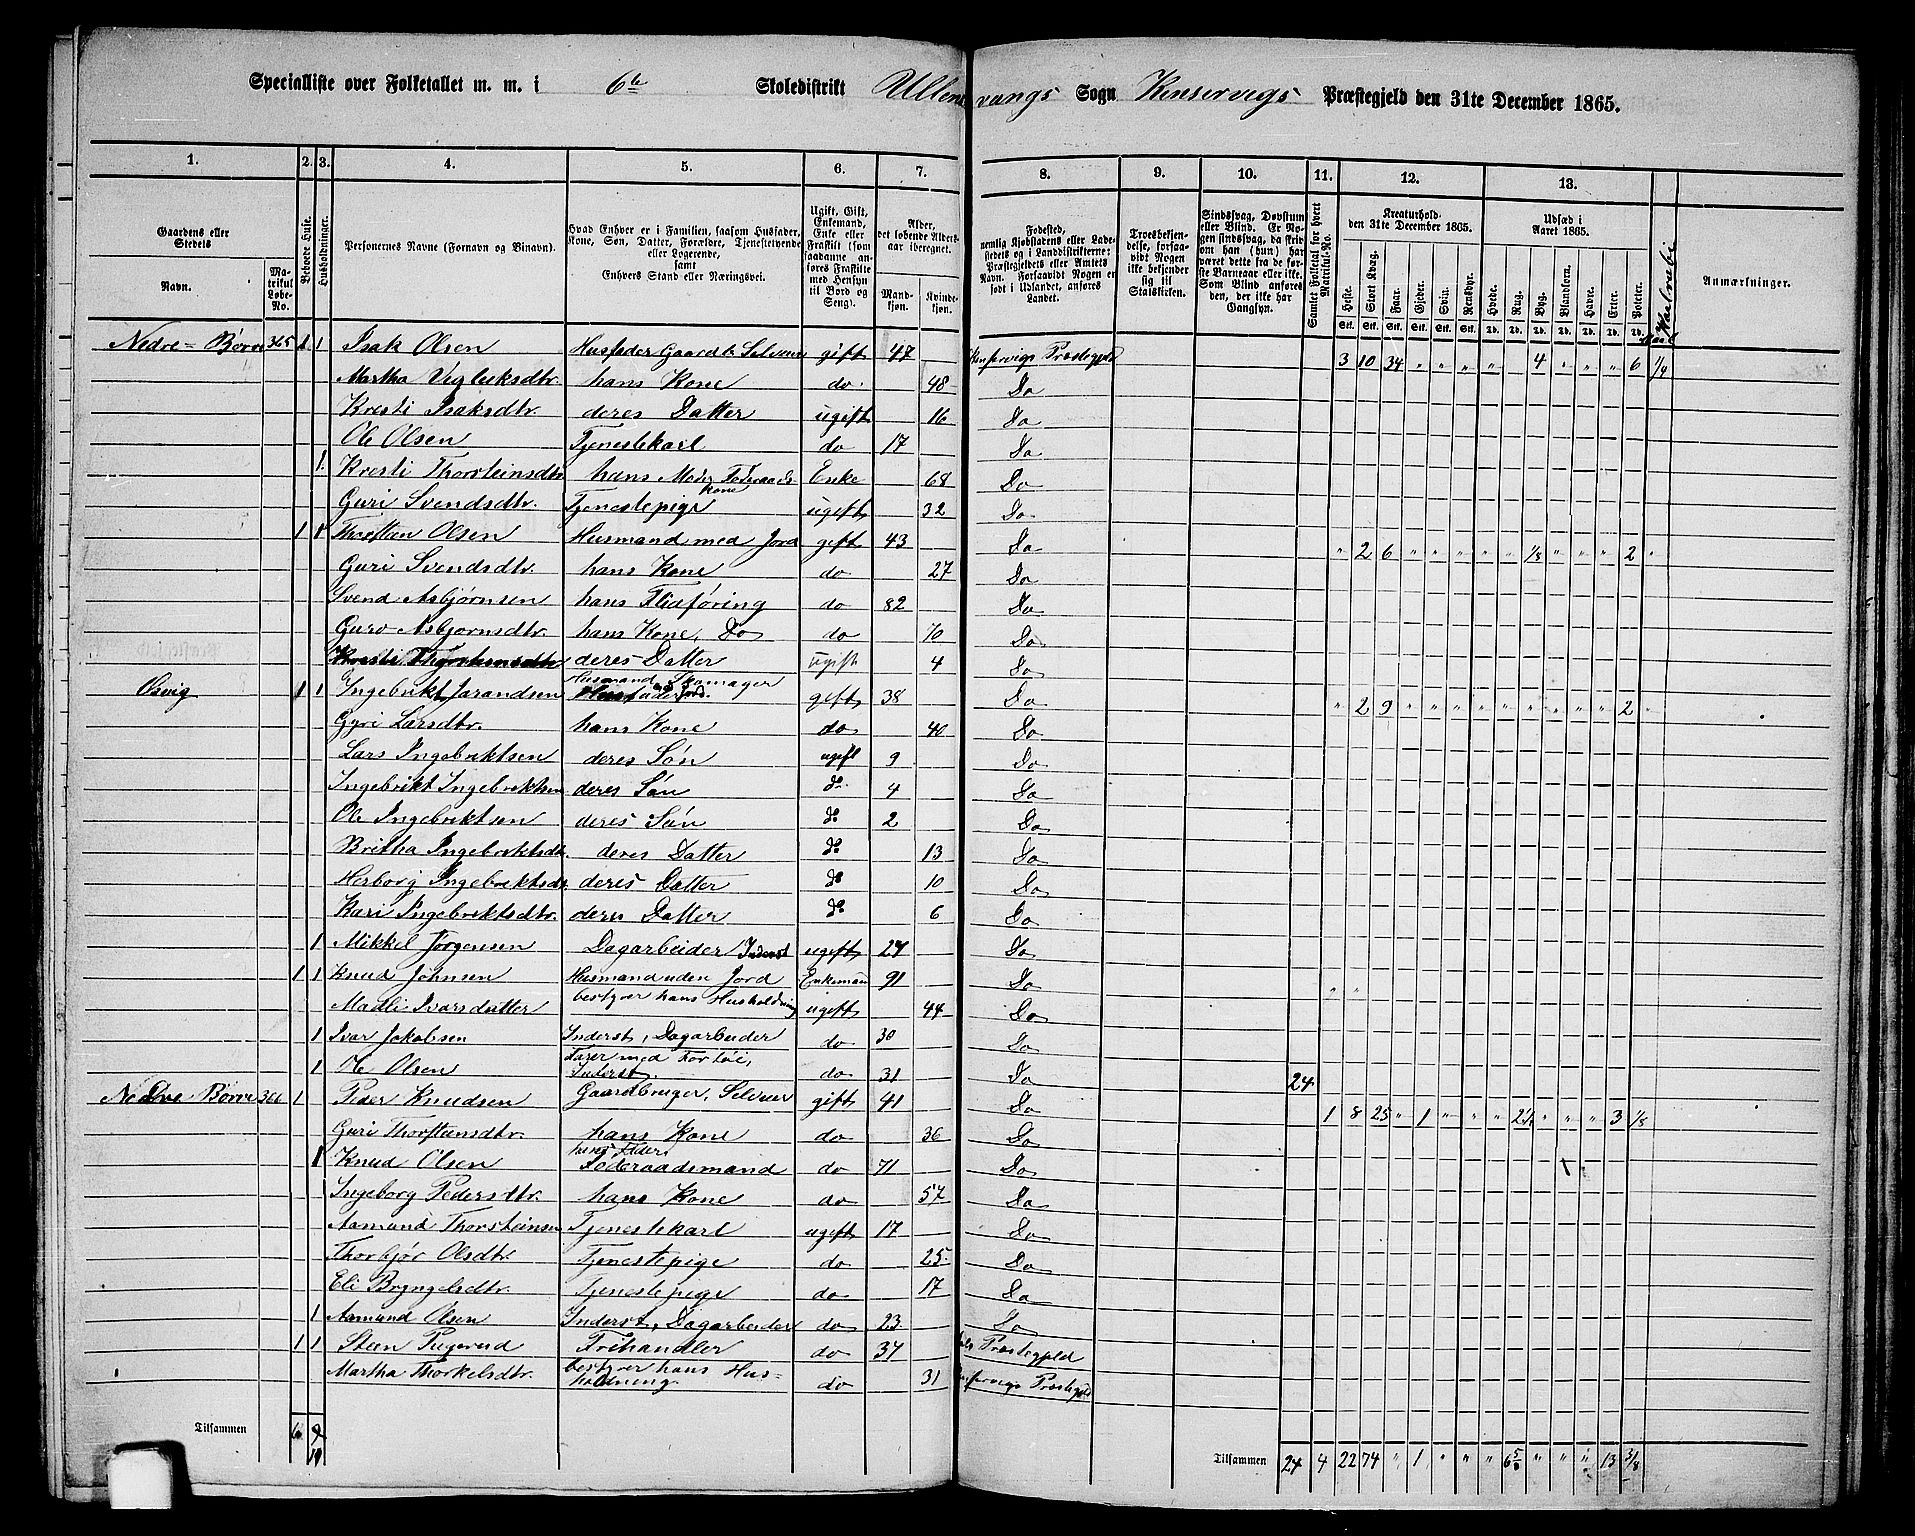 Specialliste over Folketallet m. m. i 6te Skoledistrikt Ullensvangs Sogn Kinservigs Præstegjeld den 31te December 1865.
1. 2. 3. 4. 5. 6. 7. 8. 9. 10. 11. 12. 13.
Gaardens eller Stedets
Navn.
Matrikul Løbe-No.
Beboede Huse.
Husholdninger.
Personernes Navne (Fornavn og Binavn).
Hvad Enhver er i Familien, saasom Husfader, Kone, Søn, Datter, Forældre, Tjenestetyende eller Logerende, samt Enhvers Stand eller Næringsvei.
Ugift, Gift, Enkemand, Enke eller Fraskilt (saaadanne anføres Fraskilte med Hensyn til Bord og Seng).
Alder, det løbende Alders-aar iberegnet.
Mandkjøn. Kvindekjøn.
Fødested, nemlig Kjøbstadens eller Ladestedets og i Landdistrikterne: Præstegjeldets eller Amtets Navn. Forsaavidt Nogen er født i Udlandet, anføres Landet.
Troesbekjendelse, forsaavidt Nogen ikke bekjender sig til Statskirken.
Sindssvag, Døvstum eller Blind. Er Nogen sindssvag, da skriv om han (hun) har været dette fra de første Barneaar eller ikke. Som Blind anføres den, der ikke har Gangsyn.
Samlet Folketal for hvert Matrikul-No.
Kreaturhold den 31te December 1865.
Heste. Stort Kvæg. Faar. Gjeder. Svin. Rensdyr.
Udsæd i Aaret 1865.
Hvede. Rug. Byg. Blandkorn. Havre. Erter. Poteter.
Anmærkninger.
Nedre-Børve 365 1 1 Isak Olsen Husfader Gaardb. Selveier gift 47 Kinservigs Præstegjeld 3 10 34 " " " " 4 " " " 6 1/4
Martha Vigleiksdtr. hans Kone do. 48 Do
Kristi Isaksdtr. deres Datter ugift 16 Do
Ole Olsen Tjenestekarl do 17 Do
1. Kristi Thorsteinsdtr hans Moder Føderaadskone Enke 68 Do
Guri Svendsdtr. Tjenestepige ugift 32 Do
1 1 Thorsten Olsen Husmand med Jord gift 43 Do " 2 6 " " " " " 1/8 " " " 2 "
Guri Svendsdtr. hans Kone do 27 Do
Svend Asbjørnsen hans Flidføring do 82 Do
Guro Asbjørnsdtr. hans Kone, Do do 70 Do
Kristi Thorsteinsdtr deres Datter ugift 4 Do
Husmand Skomager
Osvig 1 1 Ingebrikt Jarandsen Husfader Jord. gift 38 Do " 2 9 " " " " " " " " " 2 "
Gyri Larsdtr. hans Kone do 40 Do
Lars Ingebriktsen deres Søn ugift 9 Do
Ingebrikt Ingebriktsen deres Søn do. 4 Do
Ole Ingebriktsen deres Søn do 2 Do
Britha Ingebriktsdtr. deres Datter do 13 Do
Herborg Ingebriktsdtr deres Datter do 10 Do
Kari Ingebriktsdtr. deres Datter do 6 Do
1 Mikkel Jørgensen Dagarbeider Inderst ugift 24 Do
1 1 Knud Johnsen Husmand uden Jord Enkemand 91 Do " "
Madli Ivarsdatter bestyrer hans Husholdning ugift 44 Do
1 Ivar Jakobsen Inderst, Dagarbeider do 30 Do
Farer med Fortøi,
1 Ole Olsen Inderst. do 31 Do 24
Nedre Børve 366 1 Peder Knudsen Gaardbruger, Selveier gift 41 Do 1 8 25 " 1 " " " 2 1/2 " " " 3 1/8
Guri Thorsteinsdtr. hans Kone do 36 Do
hans Fader
1 Knud Olsen Føderaadsmand do 71 Do
Ingeborg Pedersdtr. hans Kone do 57 Do
Aamund Thorsteinsen Tjenestekarl ugift 17 Do
Thorbjør Olsdtr. Tjenestepige do 25 Do
Eli Bryngelsdtr. Tjenestepige do 17 Do
1 Aamund Olsen Inderst, Dagarbeider do 23 Do
1 1 Steen Frihandler do 34 Præstegjeld
Martha Thorkelsdtr. bestyrer hans Husholdning do 31 Kinservigs Præstegjeld
Tilsammen 6 9
11
Tilsammen 24 4 22 74 " 1 " " " 6 5/8 " " " 13 3/8